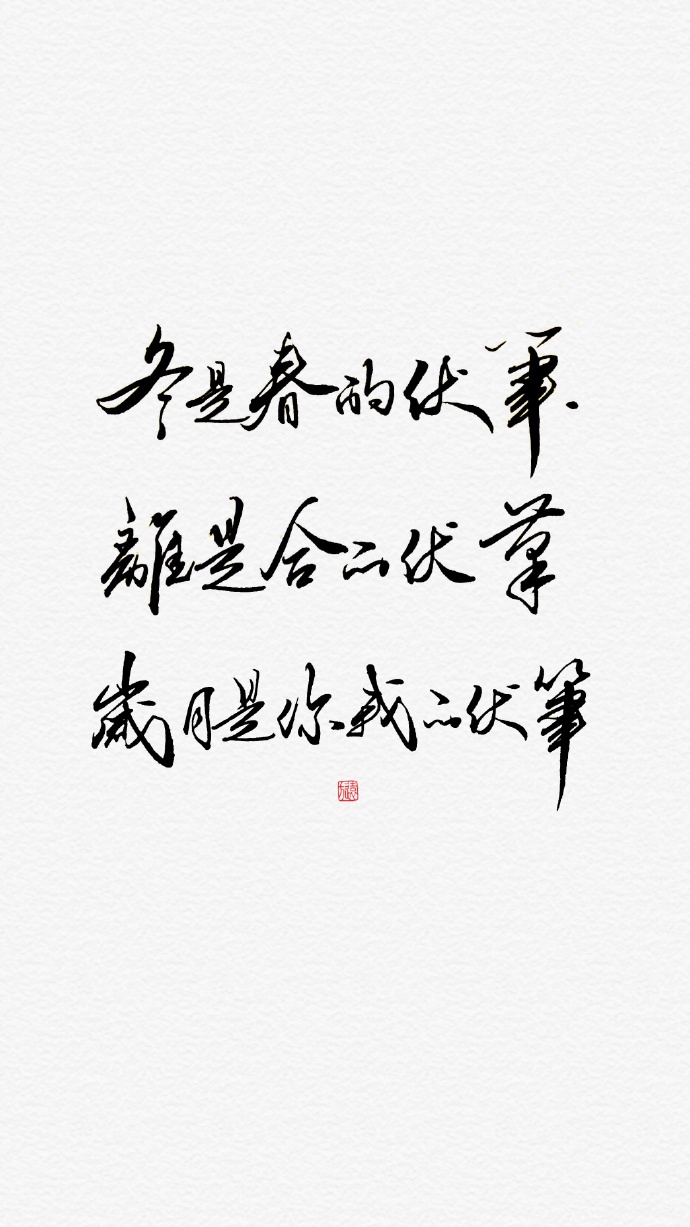 冬是春的伏筆.
離是合的伏筆
歲月是你我的伏筆